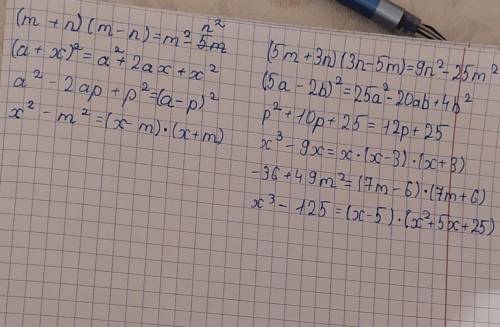 (m + n)(m - n) = m² - n² 5m
(a + x)² = a² + 2ax + x²
a² - 2ap + p² = (a - p)²
x² - m² = (x - m) · (x + m)
(5m + 3n)(3n - 5m) = 9n² - 25m²
(5a - 2b)² = 25a² - 20ab + 4b²
p² + 10p + 25 = 12p + 25
x³ - 9x = x · (x - 3) · (x + 3)
-36 + 49m² = (7m - 6) · (7m + 6)
x³ - 125 = (x - 5) · (x² + 5x + 25)